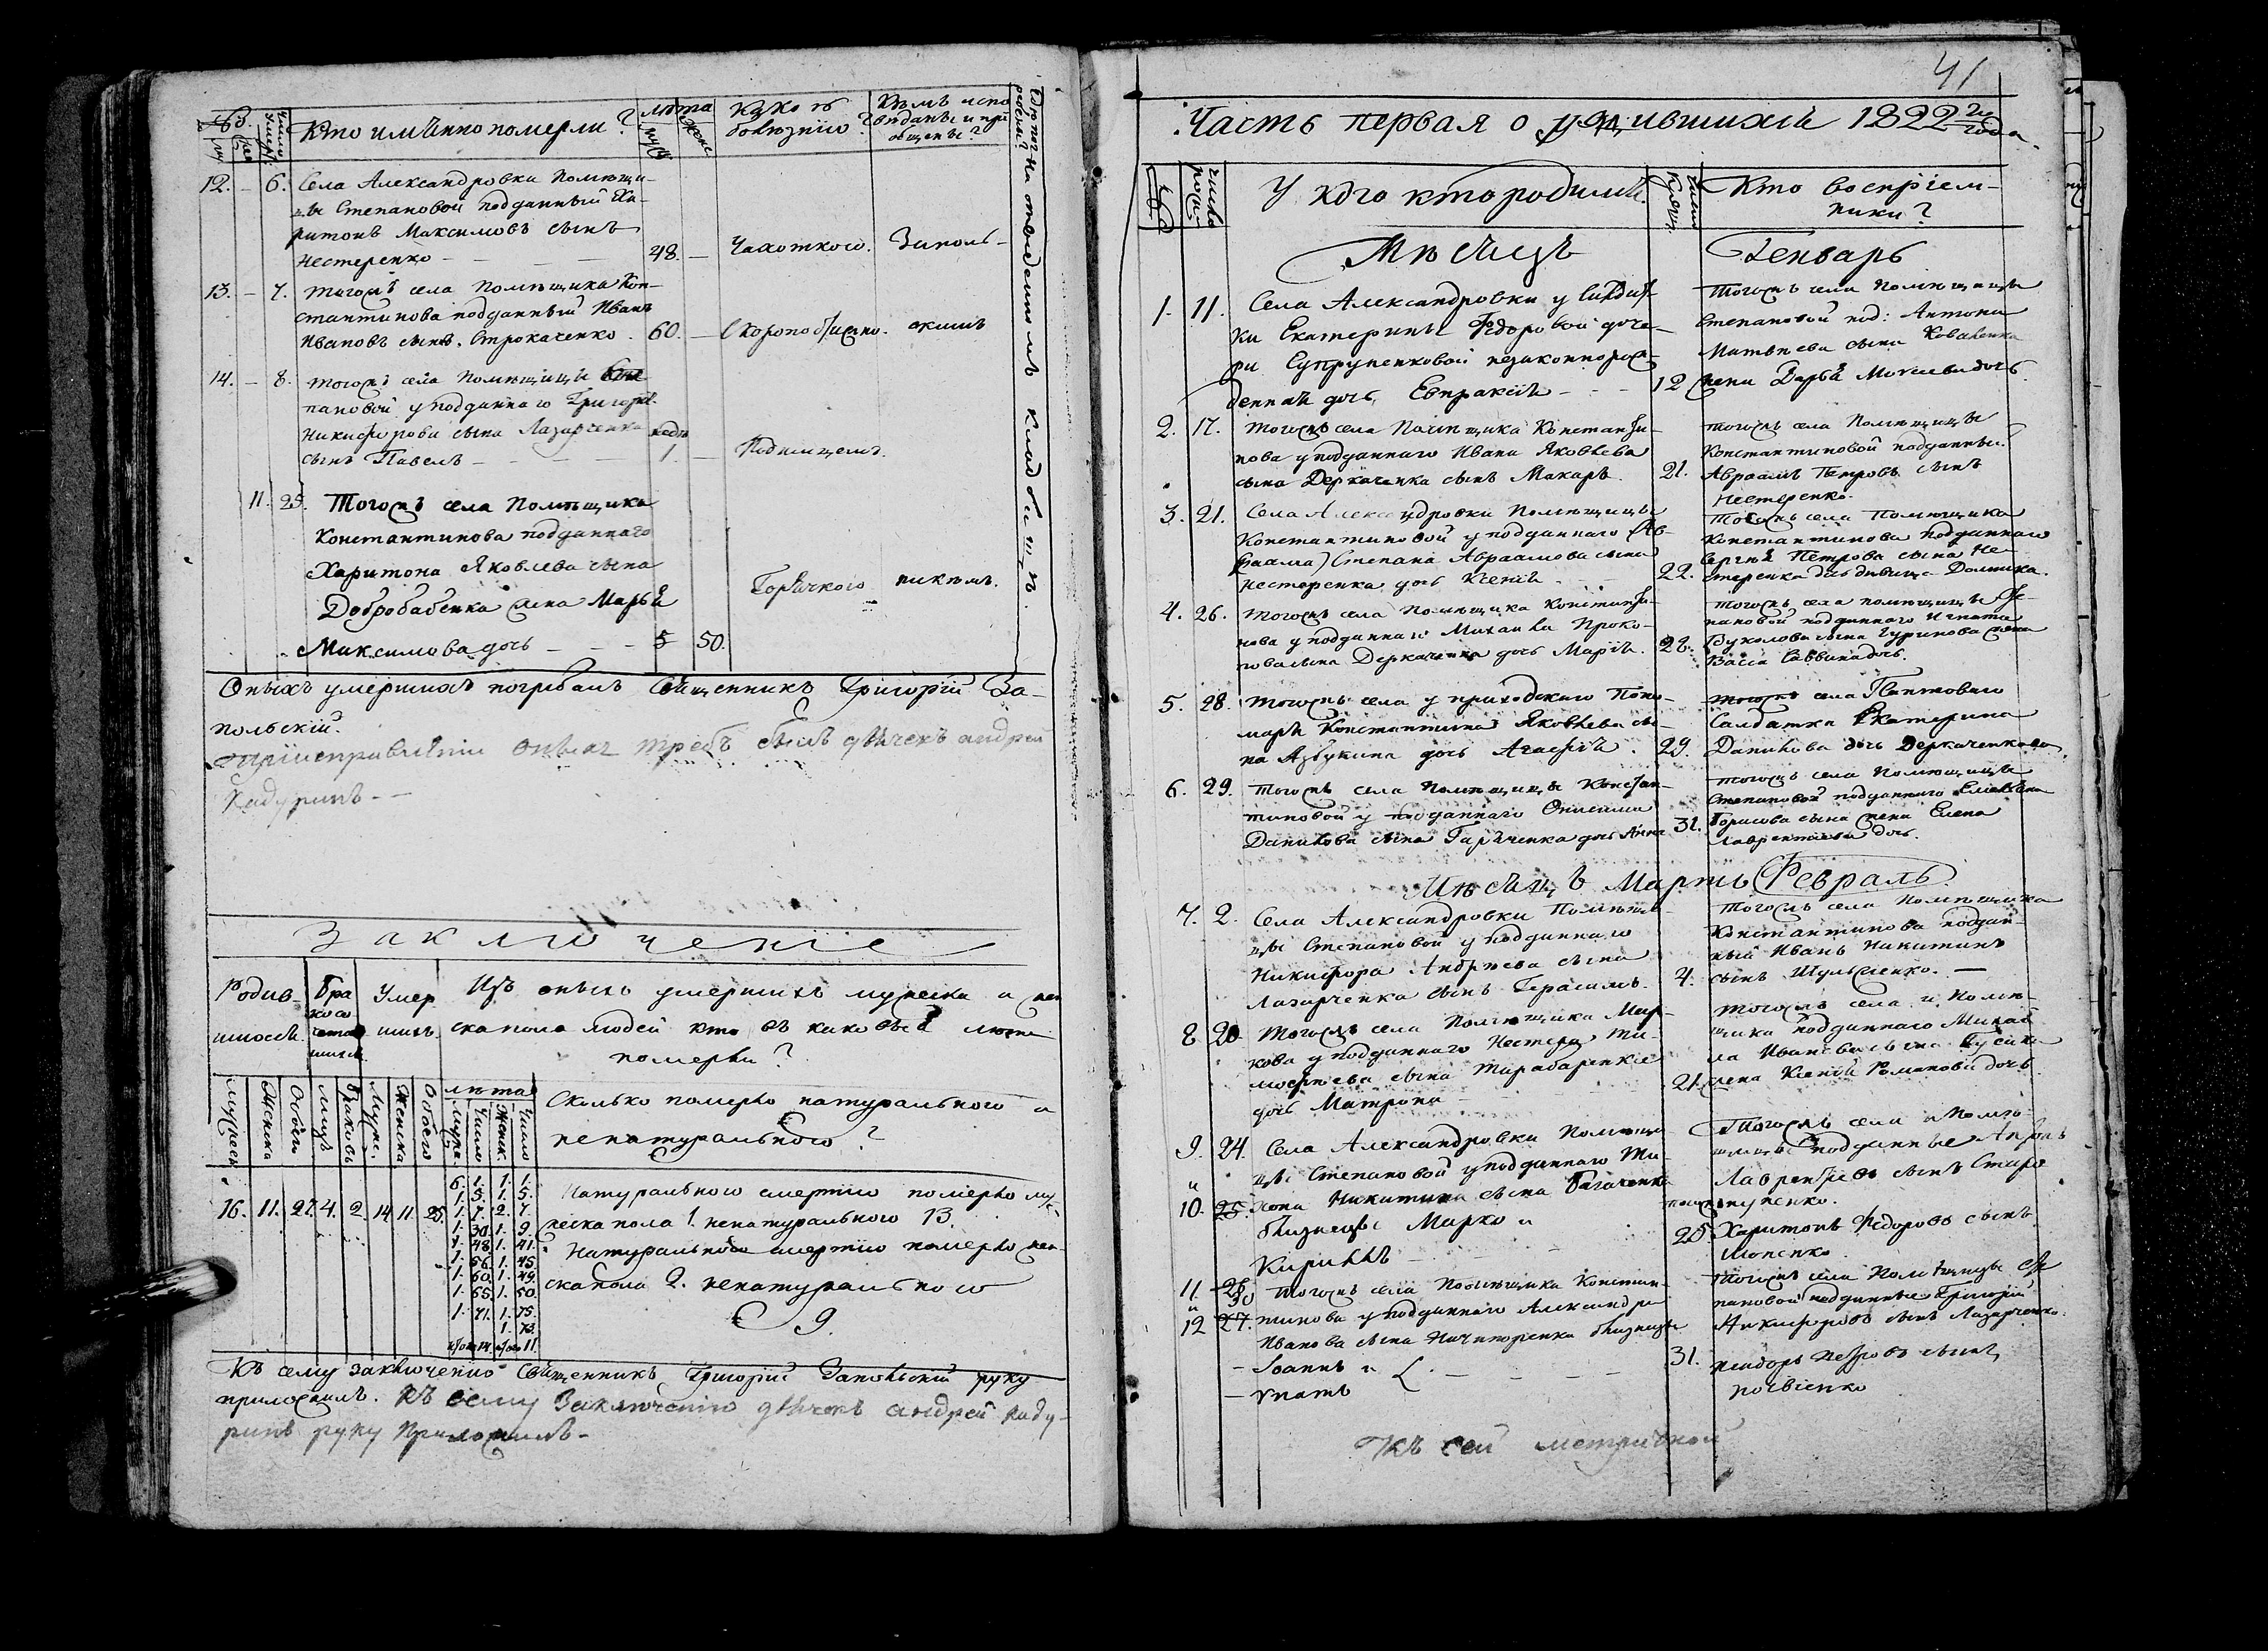 Кто именно померли?
лѣта
муж
жен
Какою болѣзнію?
Кѣмъ исповѣданы и пріобщены?
12. – 6. Села Александровки Помѣщи-
цы Степановой подданный Ха-
ритонъ Максимовъ сынъ
Нестеренко – – – 48. – Чахоткою. Заполь-
13. – 7. тогожъ села Помѣщика Кон-
стантинова подданный Иванъ
Ивановъ сынъ Строкаченко. 60. – Скоропостижно.
14. – 8. тогожъ села Помѣщицы Сте-
пановой у подданнаго Григорія
Никифорова сына Лазарченка
сынъ Павелъ – – – 1. –
11. 25. Тогожъ села Помѣщика
Константинова подданнаго
Харитона Яковлева сына
Добробабенка жена Марья Горячкою никѣмъ.
Максимова дочь – – – 5 50.
Оныхъ умершихъ погребалъ Священникъ Григорій За-
польскій.
при исправленіи оныхъ требъ былъ дьячекъ андрей
Кадуринъ. –
На отведенномъ кладбищѣ.
Заключеніе
Родив-
шихся.
Бра
косо
четав
шихся
Умер
шихъ.
Изъ оныхъ умершихъ мужеска и жен
ска пола людей кто въ каковыя лѣта
померли?
Мужеска
Женска
Обоего
Браковъ
Муже.
Женска
Обоего
лѣта
Мужс.
Число
Женск.
Число
Сколько померло натуральною и
ненатуральною?
16. 11. 27. 4. 2. 14 11 25.
6. 1. 1. 1.
1. 5. 1. 5.
1. 7. 2. 7.
1. 30. 1. 9.
1. 48. 1. 41.
1. 56. 1. 45.
1. 60. 1. 49.
1. 65. 1. 50.
1. 71. 1. 75.
Натуральною смертію померло му-
жеска пола 1. ненатуральною 13.
Натуральною смертію померло жен-
ска пола 2. ненатуральною
9.
Къ сему заключенію Священникъ Григорій Запольскій руку
приложилъ. Къ сему Заключенію дьячекъ андрей Каду-
ринъ руку Приложилъ –
41
Часть первая о родившихся 1822 го года.
Число рожд.
У кого кто родился.
Число крещ.
Кто воспріем-
ники?
Мѣсяцъ Генварь
1. 11. Села Александровки у солдат-
ки Екатерины Федоровой доче-
ри Супруненковой незаконнорож-
денная дочь Евпраксія – – 12
Тогожъ села Помѣщицы
Степановой под: Антона
Матвѣева сына Коваленка
жена Дарья Моисеева дочь.
2. 17. тогожъ села Помѣщика Константи-
нова у подданнаго Ивана Яковлева
сына Деркаченка сынъ Макаръ. 21.
тогожъ села Помѣщицы
Константиновой подданный
Авраамъ Петровъ сынъ
Нестеренко.
3. 21. Села Александровки Помѣщицы
Константиновой у подданнаго (Ав-
раама) Степана Авраамова сына
Нестеренка дочь Ксенія – 22.
Тогожъ села Помѣщика
Константинова подданнаго
Сергія Петрова сына Не-
стеренка дочь дѣвица Домника.
4. 26. тогожъ села Помѣщика Константи-
нова у подданнаго Михаила Проко-
пова сына Деркаченка дочь Марія. 28.
тогожъ села помѣщицы Сте-
пановой подданнаго Игната
Вуколова сына Гуринова жена
Васса Саввина дочь.
5. 28. тогожъ села у приходскаго Поно-
маря Константина Яковлева сы-
на Азбукина дочь Агафія. 29.
тогожъ села
Салдатка Екатерина
Данилова дочь Деркаченкова.
6. 29. тогожъ села Помѣщицы Констан-
тиновой у подданнаго Онисима
Данилова сына Гаряченка дочь Анна 31.
тогожъ села Помѣщицы
Степановой подданнаго
Борисова сына жена Елена
Лаврентіева дочь.
Мѣсяцъ Мартъ Февраль.
7. 2. Села Александровки Помѣщи-
цы Степановой у подданнаго
Никифора Андреева сына
Лазарченка сынъ Герасимъ. 4.
тогожъ села Помѣщика
Константинова поддан-
ный Иванъ Никитинъ
сынъ Шульженко. –
8 20. тогожъ села Помѣщика Мар-
кова у подданнаго Нестера Ти-
мофѣева сына
дочь Матрона 21.
тогожъ села и Помѣ-
щика подданнаго Михаи-
ла Иванова сына Гусака
жена Ксенія Романова дочь
9. 24. Села Александровки Помѣщи-
цы Степановой у подданнаго
10. 25. Никитина сына Багаченка
близнецы Марко и
Кириллъ – 25.
Тогожъ села и Помѣ-
щицы подданные Антонъ
Лаврентіевъ сынъ
Харитонъ Федоровъ сынъ
11 28 30 тогожъ села Помѣщика Констан-
12 27. тинова у подданнаго Александра
Иванова сына Ничипоренка близнецы
– Іоаннъ и
– Игнатъ – – – – 31.
тогожъ села Помѣщицы Сте
пановой подданные Григорій
Никифоровъ сынъ Лазарченко.
Петровъ сынъ
Къ сей метрической